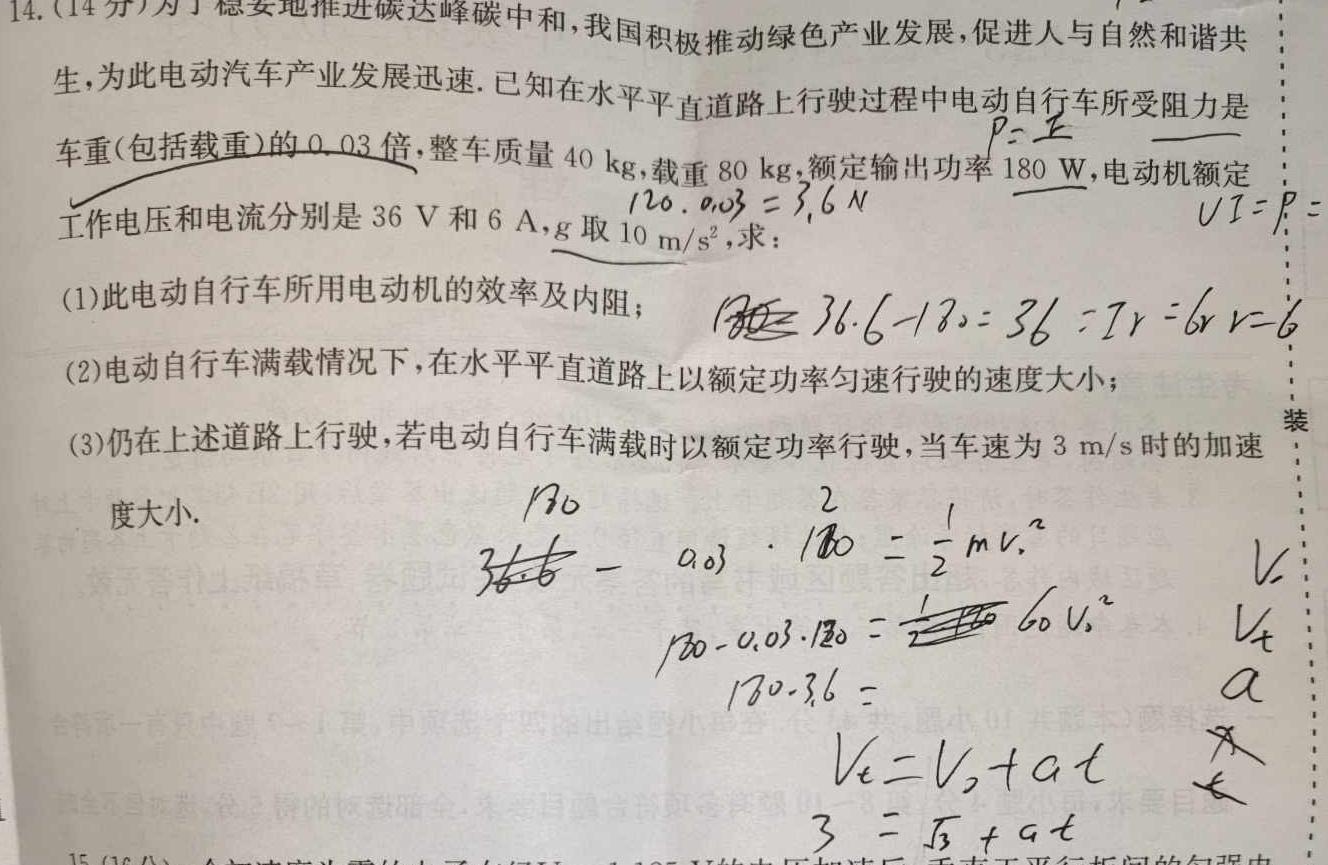 14.(14分)为了稳妥地推进碳达峰碳中和,我国积极推动绿色产业发展,促进人与自然和谐共
生,为此电动汽车产业发展迅速.已知在水平平直道路上行驶过程中电动自行车所受阻力是
P=
车重(包括载重)的0.03倍,整车质量40 kg,载重80 kg,额定输出功率180 W,电动机额定
120.0.03=3.6N
UI=P=
工作电压和电流分别是36 V和6 A,g取10 m/s²,求:
(1)此电动自行车所用电动机的效率及内阻;
36.6-180=36=Ir=6r r=6
(2)电动自行车满载情况下,在水平平直道路上以额定功率匀速行驶的速度大小;
装
(3)仍在上述道路上行驶,若电动自行车满载时以额定功率行驶,当车速为3 m/s时的加速
度大小.
180
36.6 - 0.03 · 120 = 1/2 m v.²
V.
180-0.03.120 = 60 V₀²
Vt
180-3.6 =
a
x
Vt=V₀+at
t
3 = √3 + at